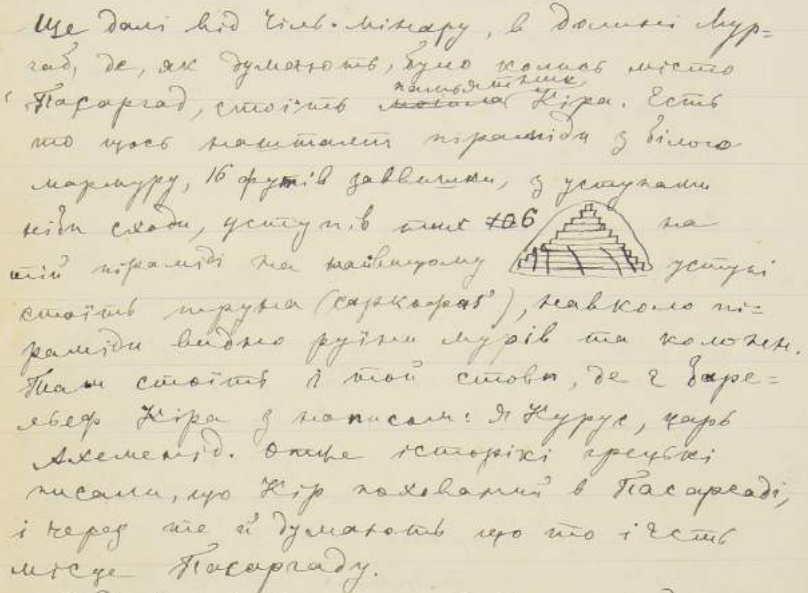 Ще далі від Чіль-Мінару, в долині Мур=
габ, де, як думають, було колись місто
Пасаргад, стоїть могила памьятник Кіра. Єсть
то щось нашталт піраміди з білого
мармуру, 16 футів заввишки, з уступами
ніби сходи, уступів тих 6 на
тій піраміді на найвищому уступі
стоїть труна (саркофаг), навколо пі=
раміди видно руїни мурів та колонн.
Там стоїть і той стовп, де є баре=
льеф Кіра з написом: Я Курус, царь
Ахеменід. Отже історікі грецькі
писали, що Кір похований в Пасаргаді,
і через те й думають що то і єсть
місце Пасаргаду.